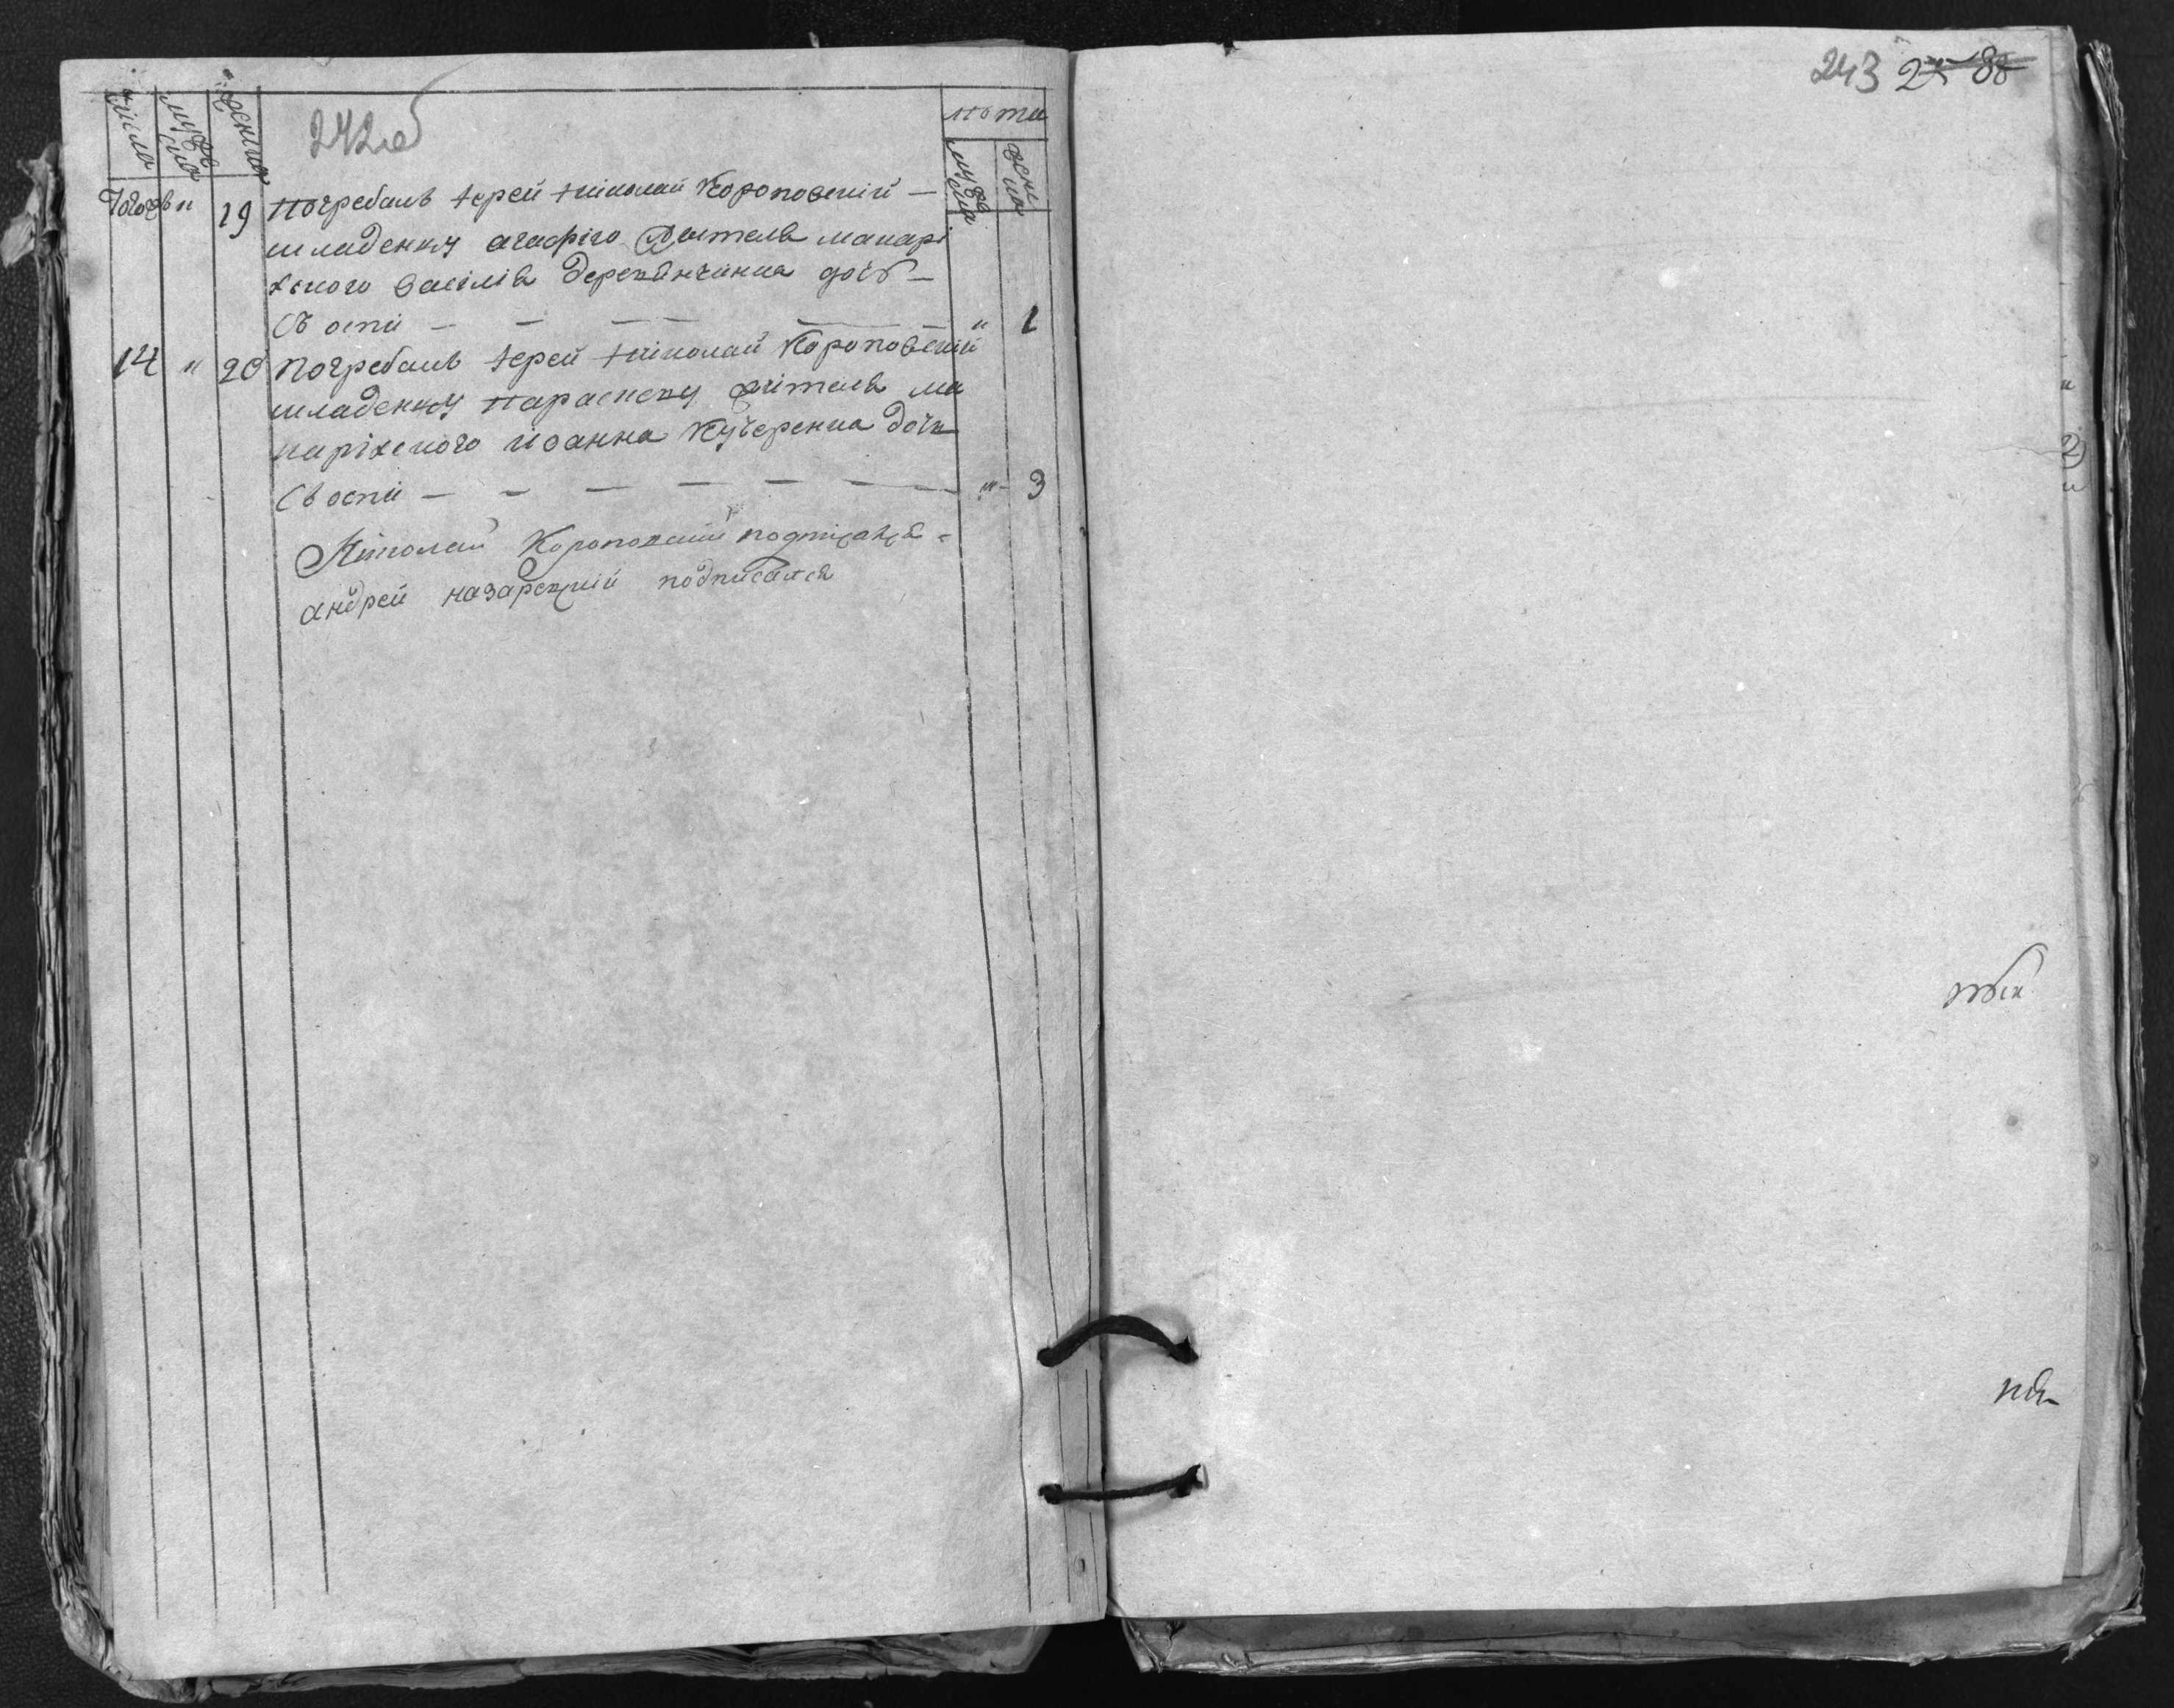 числа
мужеска
женска
242об
лѣта
мужеска
женска
Тогожъ " 19 погребалъ іерей николай Короповскій —
младенку агафію жителя макарі
хского василія деревянчинка дочь —
съ оспи — — — — — " 1
14 " 20 погребалъ іерей николай Короповскій
младенку параскеву жителя ма
каріхского иоанна Кучеренка дочь
съ оспи — — — — — — " 3
Николай Короповскій подписался
андрей назаревскій подписался
243 88